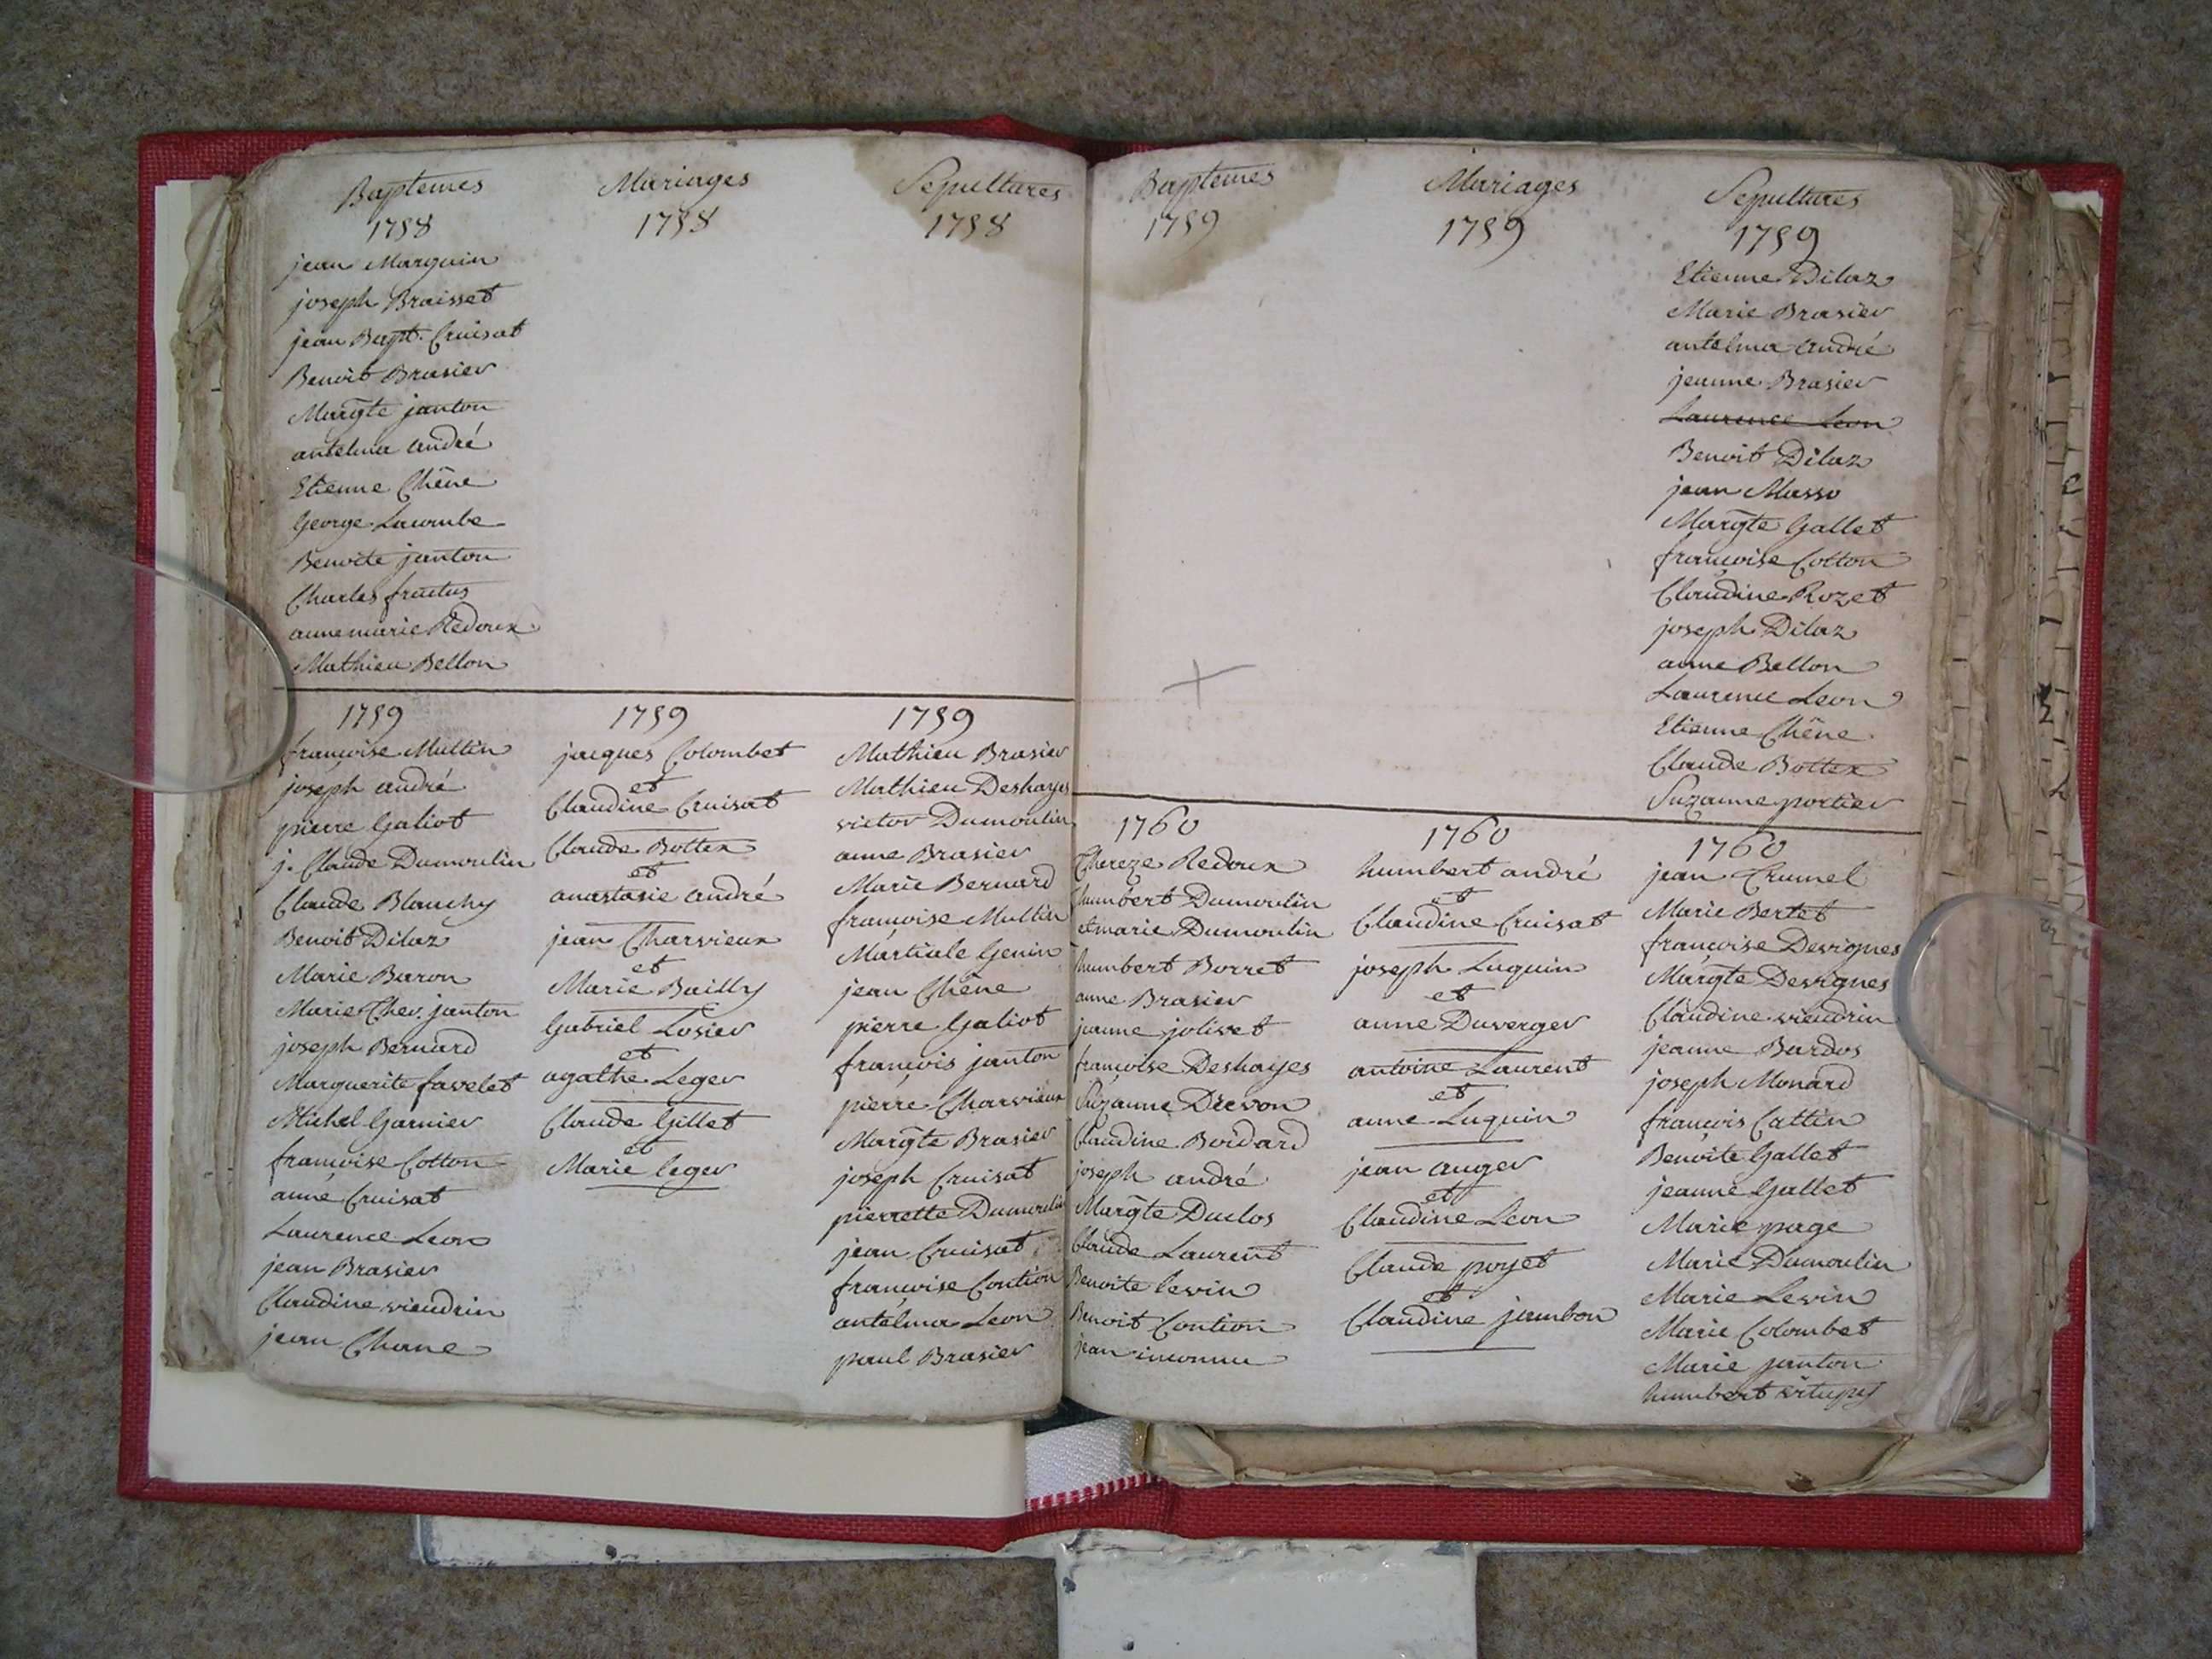 Baptemes
1758
jean Marguin
joseph Braisset
jean Bapt. Cruisat
Benoit Brasier
Margte janton
antelma andré
Etienne Chêne
George Lacombe
Benoite janton
Charles fructus
anne marie Redoux
Mathieu Bellon
Mariages
1758
Sepultures
1758
1759
françoise Multin
joseph andré
pierre Galiot
j. Claude Dumoulin
Claude Blanchy
Benoit Dilaz
Marie Baron
Marie Ther. janton
joseph Bernard
Marguerite favelet
Michel Garnier
françoise Cotton
anne Cruisat
Laurence Leon
jean Brasier
Claudine viendrin
jean Chane
1759
jacques Colombet
et
Claudine Cruisat
Claude Bottex
et
anastasie andré
jean Charvieux
et
Marie Bailly
Gabriel Losier
et
agathe Leger
Claude Gillet
et
Marie leger
1759
Mathieu Brasier
Mathieu Deshayes
victor Dumoulin
anne Brasier
Marie Bernard
françoise Multin
Martiale Genin
jean Chêne
pierre Galiot
françois janton
pierre Charvieux
Margte Brasier
joseph Cruisat
pierrette Dumoulin
jean Cruisat
françoise Contion
antelma Leon
paul Brasier
Baptemes
1759
Mariages
1759
Sepultures
1759
Etienne Dilaz
Marie Brasier
antelma andré
jeanne Brasier
Laurence Leon
Benoit Dilaz
jean Masso
Margte Gallet
françoise Cotton
Claudine Rozet
joseph Dilaz
anne Bellon
Laurence Leon
Etienne Chêne
Claude Bottex
Suzanne portier
1760
Thereze Redoux
humbert Dumoulin
et marie Dumoulin
humbert Borret
anne Brasier
jeanne jolivet
françoise Deshayes
Suzanne Drevon
Claudine Boidard
joseph andré
Margte Duclos
Claude Laurent
Benoite levin
Benoit Contion
jean inconnu
1760
humbert andré
et
Claudine Cruisat
joseph Luguin
et
anne Duverger
antoine Laurent
et
anne Luguin
jean auger
et
Claudine Leon
Claude poyet
et
Claudine jambon
1760
jean Trumel
Marie Bertet
françoise Desvignes
Margte Desvignes
Claudine viendrin
jeanne Bardos
joseph Monard
françois Cattin
Benoite Gallet
jeanne Gallet
Marie page
Marie Dumoulin
Marie Levin
Marie Colombet
Marie janton
humbert